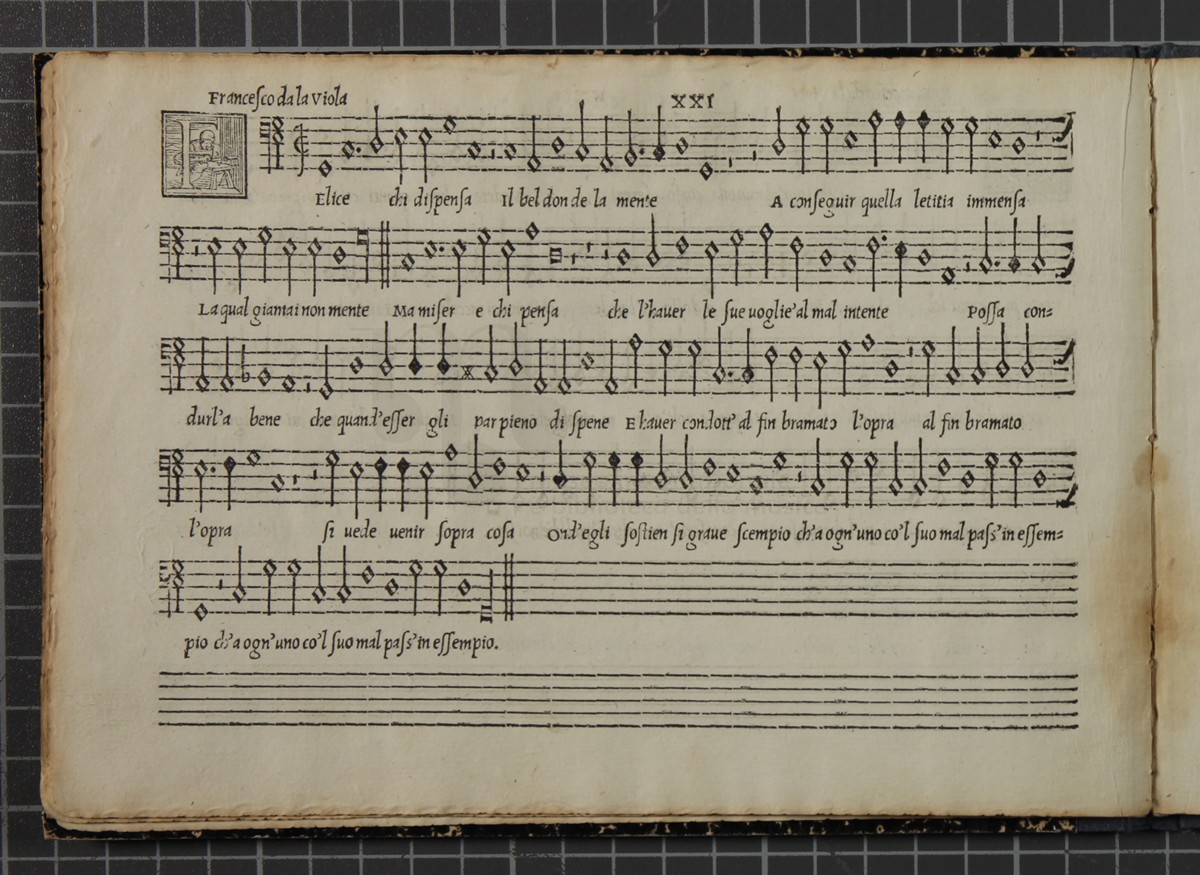 Franceſco da la Viola XXI
F Elice chi diſpenſa Il bel don de la mente A conſeguir quella letitia immenſa
La qual giamai non mente Ma miſer e chi penſa che l'hauer le ſue uoglie'al mal intente Poſſa con=
durl'a bene che quand'eſſer gli par pieno di ſpene E hauer condott' al fin bramato l'opra al fin bramato
l'opra ſi uede uenir ſopra coſa Ond'egli ſoſtien ſi graue ſcempio ch'a ogn'uno co'l ſuo mal paſs'in eſſem=
pio ch'a ogn'uno co'l ſuo mal paſs'in eſſempio.